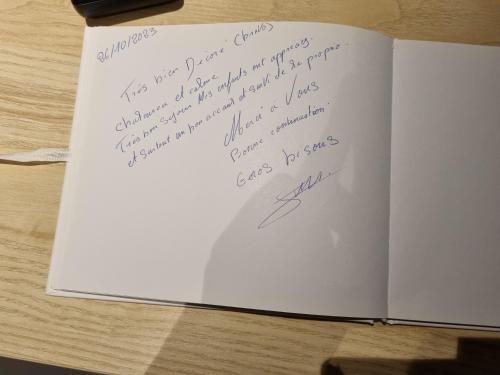 26/10/2023
Très bien Décoré (bravo)
chaleureux et calme
Très bon séjour Mes enfants ont apprécié.
et surtout un bon accueil et suivi de la proprio.
Merci à Vous
Bonne continuation.
Gros bisous